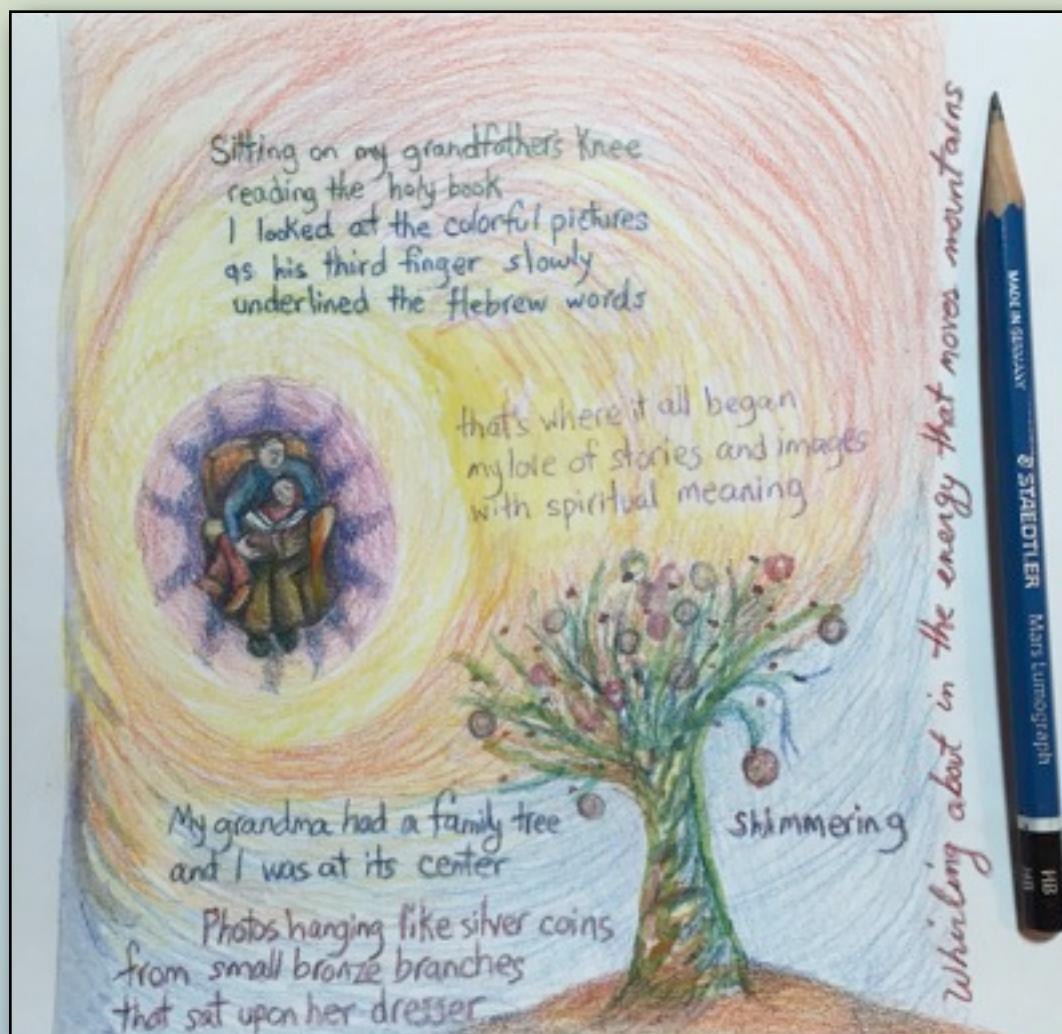 Sitting on my grandfather's knee
reading the holy book
I looked at the colorful pictures
as his third finger slowly
underlined the Hebrew words
that's where it all began
my love of stories and images
with spiritual meaning
My grandma had a family tree
and I was at its center
Shimmering
Photos hanging like silver coins
from small bronze branches
that sat upon her dresser
Whirling about in the energy that moves mountains
MADE IN GERMANY STAEDTLER Mars Lumograph
HB
HB